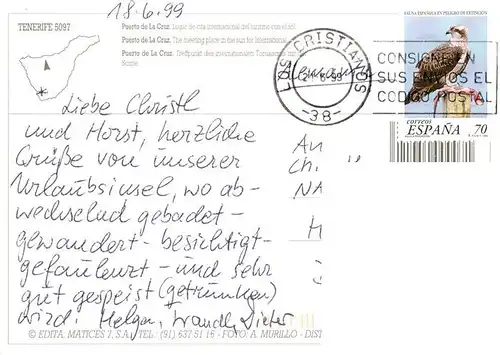 18.6.99
TENERIFE 5097
Puerto de La Cruz. Lugar de cita internacional del turismo con el sol.
Puerto de La Cruz. The meeting place in the sun for international
Puerto de La Cruz. Treffpunkt des internationalen Tourismus
Sonne.
FAUNA ESPAÑOLA EN PELIGRO DE EXTINCION
LOS CRISTIANOS
-38-
CONSIGNEN
SUS ENVIOS EL
CODIGO POSTAL
correos
ESPAÑA 70
Alemania
Liebe Christl
und Horst, herzliche
Grüße von unserer
Urlaubsinsel, wo ab-
wechselnd gebadet-
gewandert- besichtigt-
gefaulenzt- und sehr
gut gespeist (getrunken)
wird! Helga, Dieter
An
Ch.
NA
H
© EDITA. MATICES 7, S.A. TEL. (91) 637 51 16 - FOTO: A. MURILLO - DIST